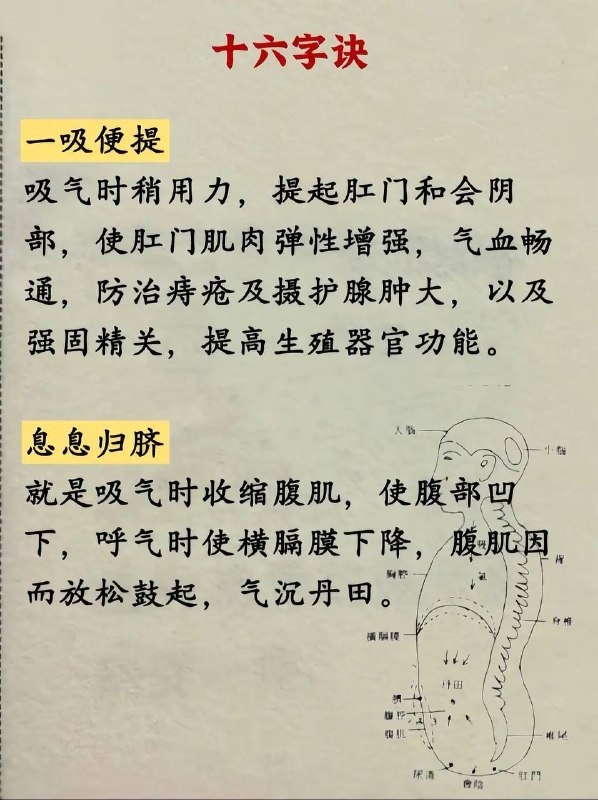 十六字诀
一吸便提
吸气时稍用力，提起肛门和会阴
部，使肛门肌肉弹性增强，气血畅
通，防治痔疮及摄护腺肿大，以及
强固精关，提高生殖器官功能。
息息归脐
就是吸气时收缩腹肌，使腹部凹
下，呼气时使横膈膜下降，腹肌因
而放松鼓起，气沉丹田。
大腦
小腦
喉
背
胸腔
氣
脊椎
橫膈膜
丹田
臍
腹腔
腹肌
尾
尿道
會陰
肛門